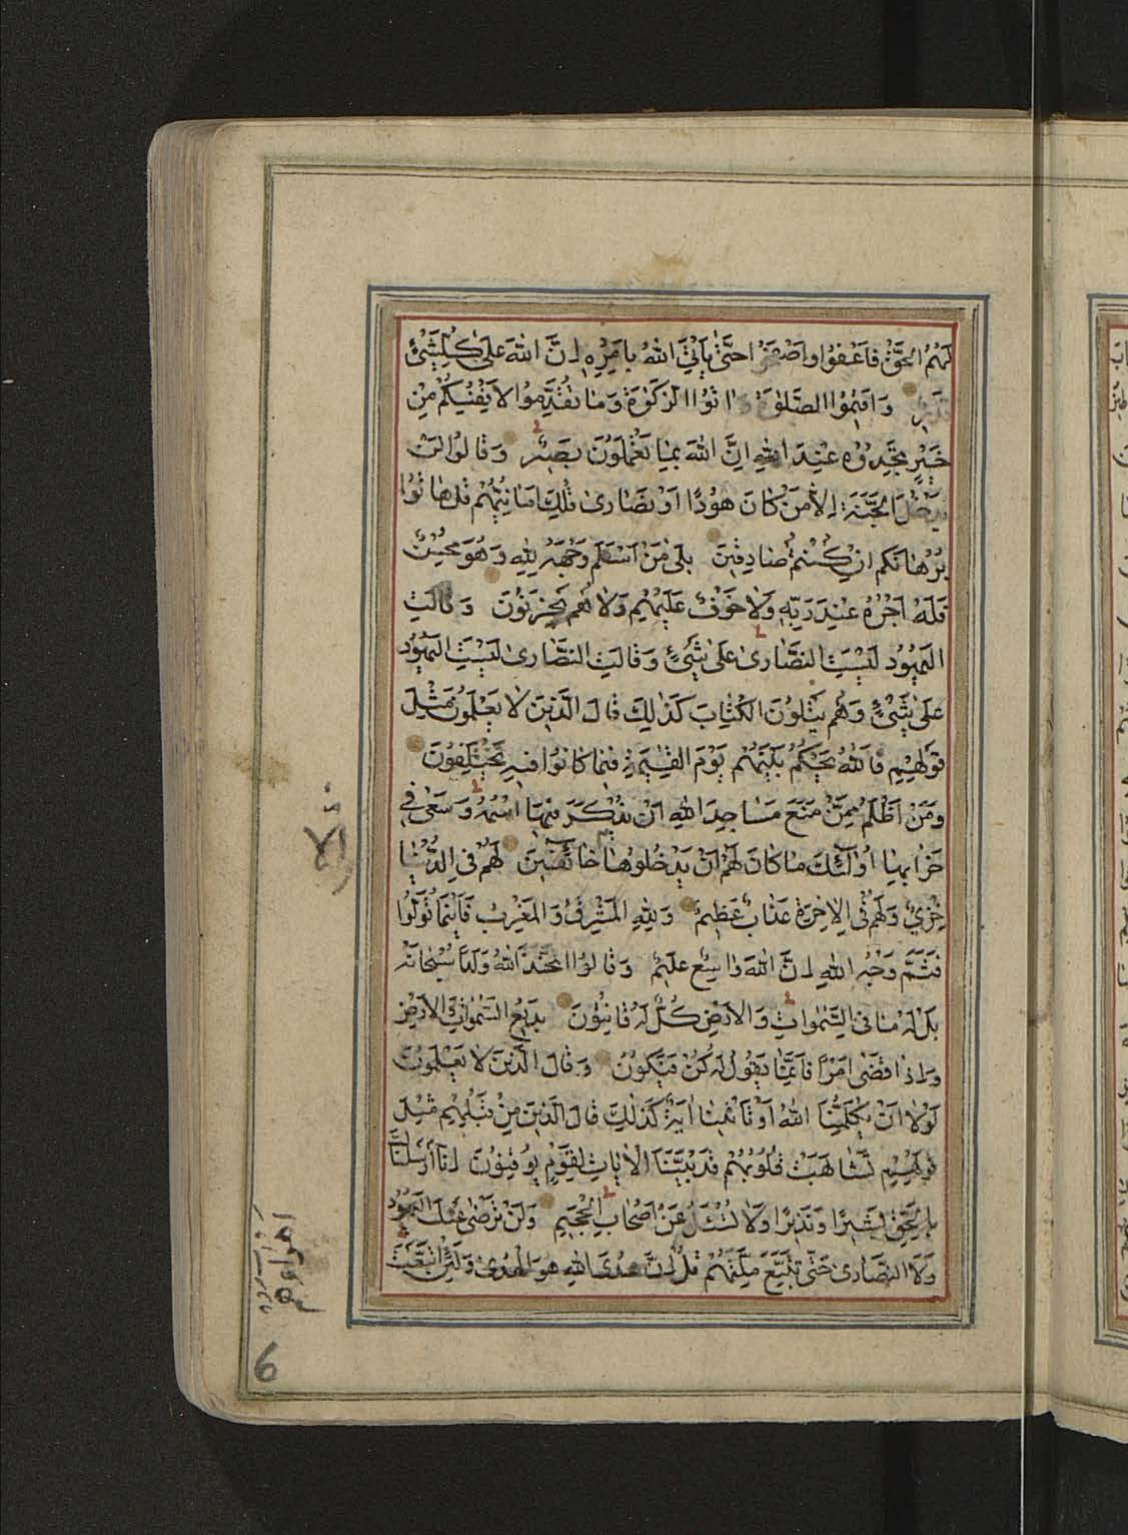 لَهُمُ الْحَقُّ فَاعْفُوا وَاصْفَحُوا حَتّٰى يَأْتِيَ اللّٰهُ بِاَمْرِهِ اِنَّ اللّٰهَ عَلٰى كُلِّ شَيْئٍ
قَدِيرٌ وَاَقِيمُوا الصَّلٰوةَ وَاٰتُوا الزَّكٰوةَ وَمَا تُقَدِّمُوا لِاَنْفُسِكُمْ مِنْ
خَيْرٍ تَجِدُوهُ عِنْدَ اللّٰهِ اِنَّ اللّٰهَ بِمَا تَعْمَلُونَ بَصِيرٌ وَقَالُوا لَنْ
يَدْخُلَ الْجَنَّةَ اِلَّا مَنْ كَانَ هُودًا اَوْ نَصَارٰى تِلْكَ اَمَانِيُّهُمْ قُلْ هَاتُوا
بُرْهَانَكُمْ اِنْ كُنْتُمْ صَادِقِينَ بَلٰى مَنْ اَسْلَمَ وَجْهَهُ لِلّٰهِ وَهُوَ مُحْسِنٌ
فَلَهُ اَجْرُهُ عِنْدَ رَبِّهِ وَلَا خَوْفٌ عَلَيْهِمْ وَلَا هُمْ يَحْزَنُونَ وَقَالَتِ
الْيَهُودُ لَيْسَتِ النَّصَارٰى عَلٰى شَيْئٍ وَقَالَتِ النَّصَارٰى لَيْسَتِ الْيَهُودُ
عَلٰى شَيْئٍ وَهُمْ يَتْلُونَ الْكِتَابَ كَذٰلِكَ قَالَ الَّذِينَ لَا يَعْلَمُونَ مِثْلَ
قَوْلِهِمْ فَاللّٰهُ يَحْكُمُ بَيْنَهُمْ يَوْمَ الْقِيٰمَةِ فِيمَا كَانُوا فِيهِ يَخْتَلِفُونَ
وَمَنْ اَظْلَمُ مِمَّنْ مَنَعَ مَسَاجِدَ اللّٰهِ اَنْ يُذْكَرَ فِيهَا اسْمُهُ وَسَعٰى فِي
خَرَابِهَا اُولٰئِكَ مَا كَانَ لَهُمْ اَنْ يَدْخُلُوهَا خَائِفِينَ لَهُمْ فِي الدُّنْيَا
خِزْيٌ وَلَهُمْ فِي الْاٰخِرَةِ عَذَابٌ عَظِيمٌ وَلِلّٰهِ الْمَشْرِقُ وَالْمَغْرِبُ فَاَيْنَمَا تُوَلُّوا
فَثَمَّ وَجْهُ اللّٰهِ اِنَّ اللّٰهَ وَاسِعٌ عَلِيمٌ وَقَالُوا اتَّخَذَ اللّٰهُ وَلَدًا سُبْحَانَهُ
بَلْ لَهُ مَا فِي السَّمٰوَاتِ وَالْاَرْضِ كُلٌّ لَهُ قَانِتُونَ بَدِيعُ السَّمٰوَاتِ وَالْاَرْضِ
وَاِذَا قَضٰى اَمْرًا فَاِنَّمَا يَقُولُ لَهُ كُنْ فَيَكُونُ وَقَالَ الَّذِينَ لَا يَعْلَمُونَ
لَوْلَا اَنْ يُكَلِّمُنَا اللّٰهُ اَوْ تَأْتِينَا اٰيَةٌ كَذٰلِكَ قَالَ الَّذِينَ مِنْ قَبْلِهِمْ مِثْلَ
قَوْلِهِمْ تَشَابَهَتْ قُلُوبُهُمْ قَدْ بَيَّنَّا الْاٰيَاتِ لِقَوْمٍ يُوقِنُونَ اِنَّا اَرْسَلْنَاكَ
بِالْحَقِّ بَشِيرًا وَنَذِيرًا وَلَا تُسْئَلُ عَنْ اَصْحَابِ الْجَحِيمِ وَلَنْ تَرْضٰى عَنْكَ الْيَهُودُ
وَلَا النَّصَارٰى حَتّٰى تَتَّبِعَ مِلَّتَهُمْ قُلْ اِنَّ هُدَى اللّٰهِ هُوَ الْهُدٰى وَلَئِنِ اتَّبَعْتَ
اهواءهم
6